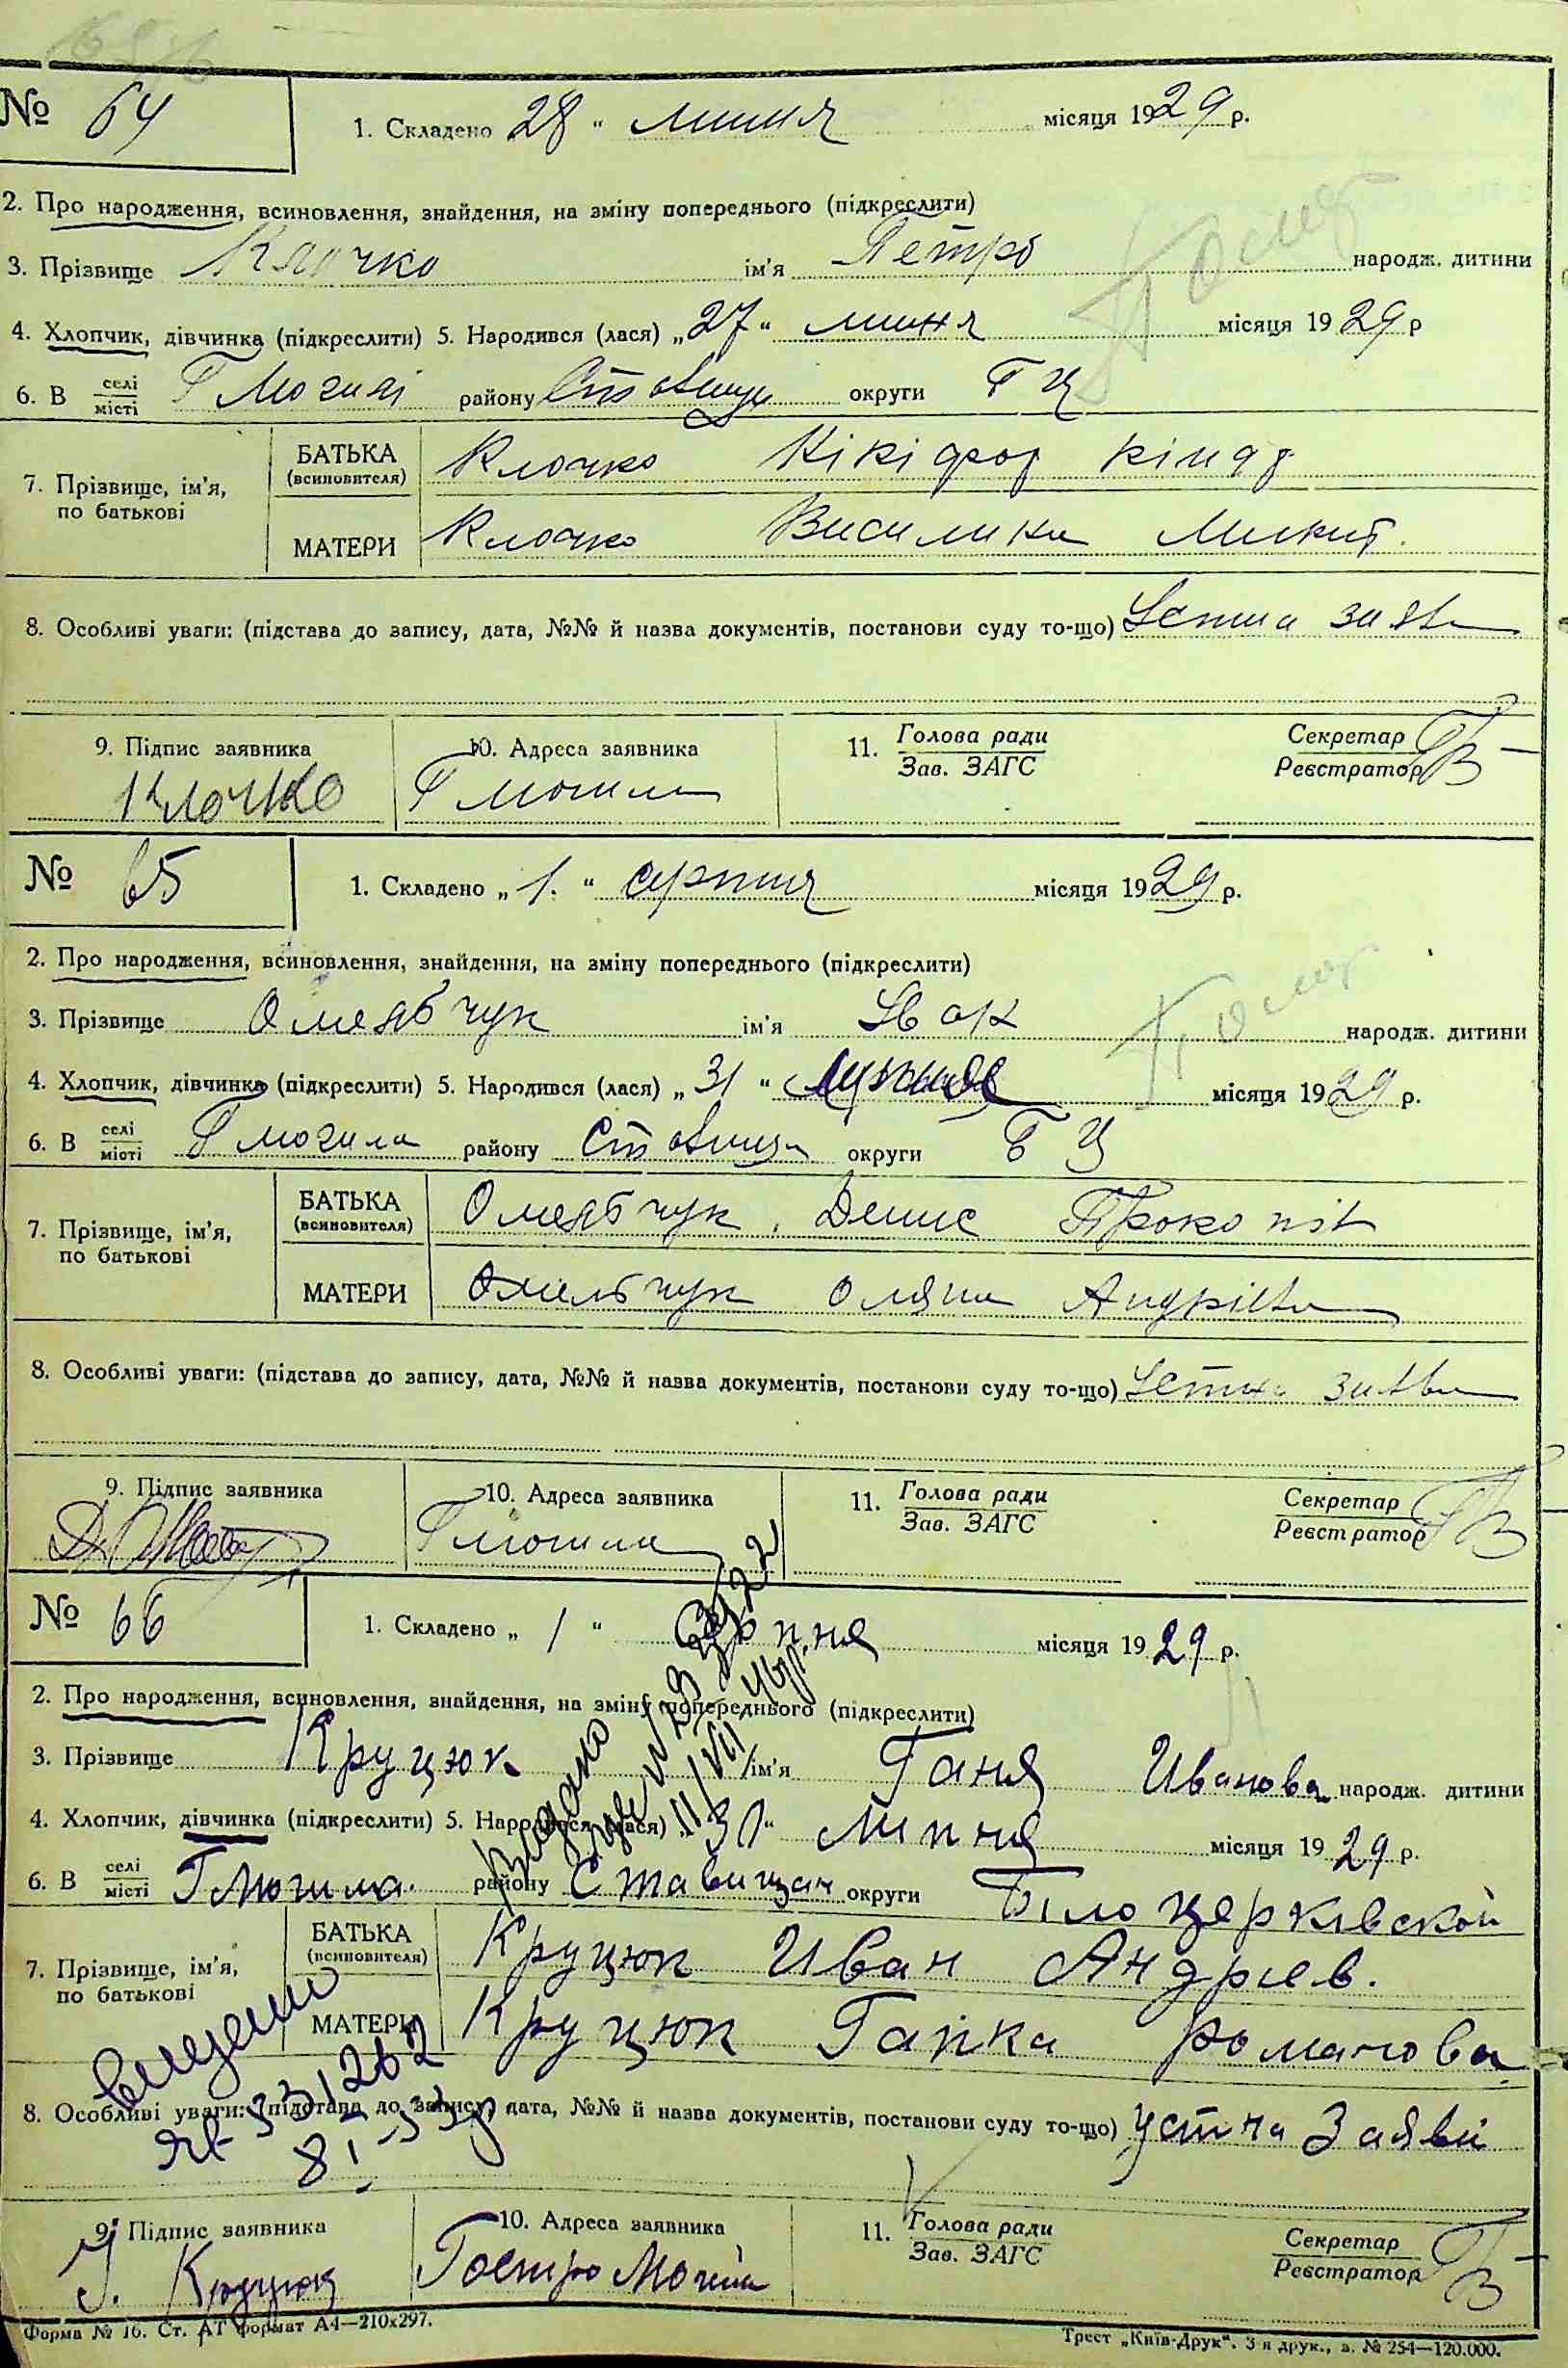 № 64
1. Складено 28 " липня місяця 1929 р.
2. Про народження, всиновлення, знайдення, на зміну попереднього (підкреслити)
3. Прізвище Клочко ім'я Петро народж. дитини
4. Хлопчик, дівчинка (підкреслити) 5. Народився (лася) „27" липня місяця 1929 р
6. В селі/місті Г Могилі району Ставищ округи БЦ
7. Прізвище, ім'я, по батькові
БАТЬКА (всиновителя) Клочко Нікіфор
МАТЕРИ Клочко Василина Микит.
8. Особливі уваги: (підстава до запису, дата, №№ й назва документів, постанови суду то-що) Устна заява
9. Підпис заявника 10. Адреса заявника 11. Голова ради/Зав. ЗАГС Секретар/Реєстратор
Клочко Г Могила
№ 65
1. Складено „ 1. " серпня місяця 1929 р.
2. Про народження, всиновлення, знайдення, на зміну попереднього (підкреслити)
3. Прізвище Омельчук ім'я народж. дитини
4. Хлопчик, дівчинка (підкреслити) 5. Народився (лася) „ 31 " місяця 1929 р.
6. В селі/місті Г Могила району Ставищ округи БЦ
7. Прізвище, ім'я, по батькові
БАТЬКА (всиновителя) Омельчук Денис Прокопів
МАТЕРИ Омельчук Оляна Андріївна
8. Особливі уваги: (підстава до запису, дата, №№ й назва документів, постанови суду то-що) Устна заява
9. Підпис заявника 10. Адреса заявника 11. Голова ради/Зав. ЗАГС Секретар/Реєстратор
Г Могила
№ 66
1. Складено „ 1 " серпня місяця 1929 р.
2. Про народження, всиновлення, знайдення, на зміну попереднього (підкреслити)
3. Прізвище Круцюк ім'я Ганя Иванова народж. дитини
4. Хлопчик, дівчинка (підкреслити) 5. Народився (лася) „ 31" Липня місяця 1929 р.
6. В селі/місті Г Могила. району Ставищан округи Білоцерківской
7. Прізвище, ім'я, по батькові
БАТЬКА (всиновителя) Круцюк Иван Андрієв.
МАТЕРИ Круцюк Гапка Романова
8. Особливі уваги: (підстава до запису, дата, №№ й назва документів, постанови суду то-що) Устна Заява
9. Підпис заявника 10. Адреса заявника 11. Голова ради/Зав. ЗАГС Секретар/Реєстратор
Круцюк Гостро Могила
Форма № 16. Ст. АТ формат А4—210х297.
Трест „Київ-Друк". 3 я друк., з. № 254—120.000.